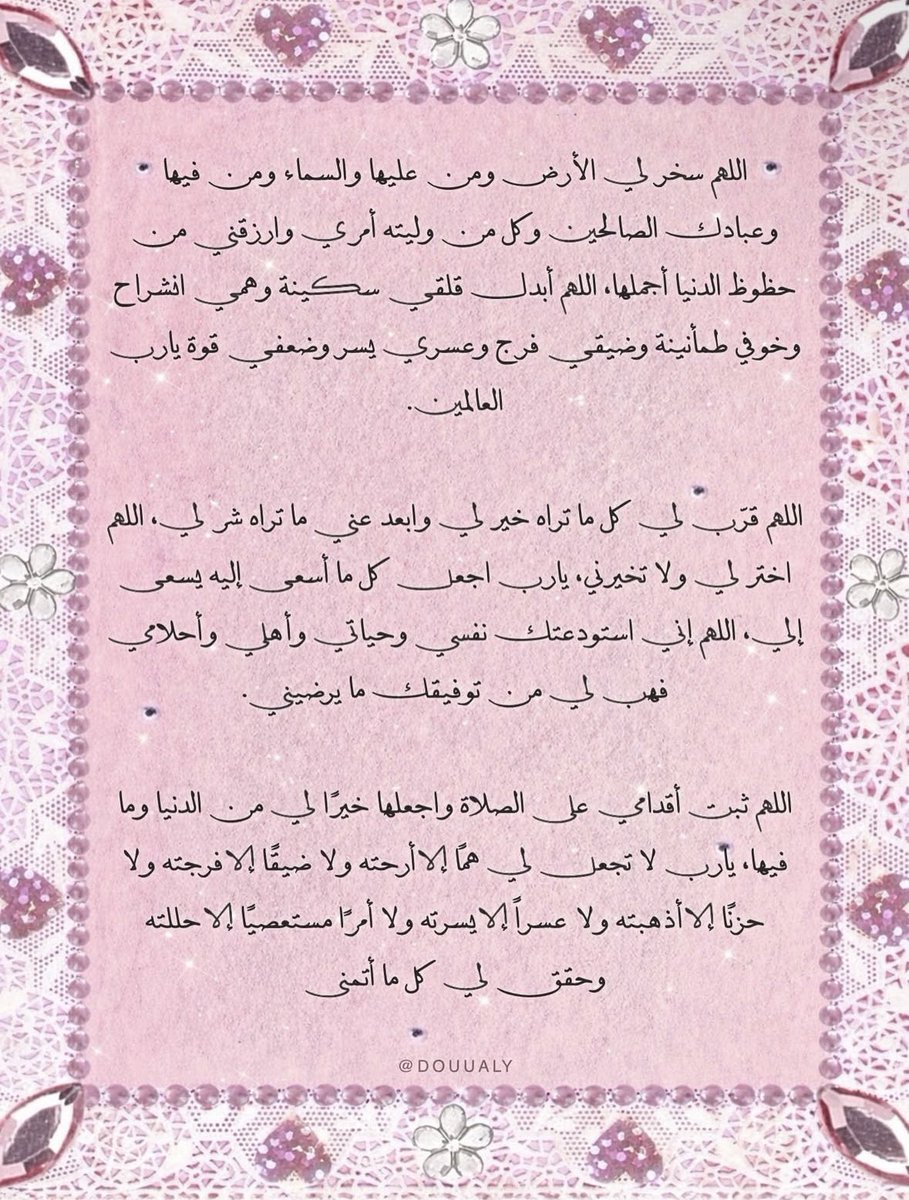 اللهم سخر لي الأرض ومن عليها والسماء ومن فيها
وعبادك الصالحين وكل من وليته أمري وارزقني من
حظوظ الدنيا أجملها، اللهم أبدل قلقي سكينة وهمي انشراح
وخوفي طمأنينة وضيقي فرج وعسري يسر وضعفي قوة يارب
العالمين.
اللهم قرّب لي كل ما تراه خير لي وابعد عني ما تراه شر لي، اللهم
اختر لي ولا تخيرني، يارب اجعل كل ما أسعى إليه يسعى
إلي، اللهم إني استودعتك نفسي وحياتي وأهلي وأحلامي
فهب لي من توفيقك ما يرضيني .
اللهم ثبت أقدامي على الصلاة واجعلها خيرًا لي من الدنيا وما
فيها، يارب لا تجعل لي همًا إلا أرحته ولا ضيقًا إلا فرجته ولا
حزنًا إلا أذهبته ولا عسراً إلا يسرته ولا أمرًا مستعصيًا إلا حللته
وحقق لي كل ما أتمنى
@DOUUALY